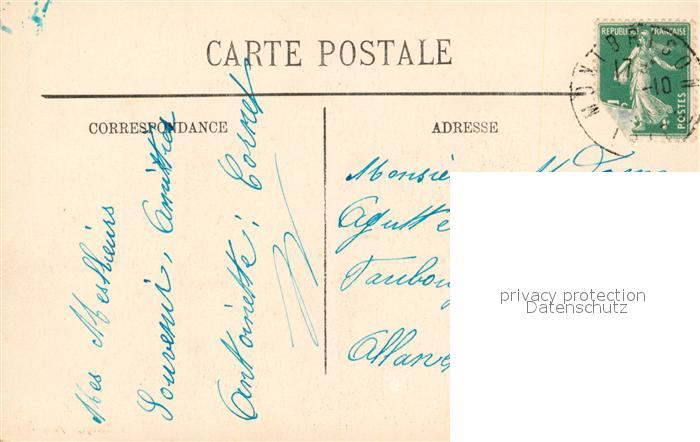 CARTE POSTALE
CORRESPONDANCE
ADRESSE
REPUBLIQUE FRANÇAISE
POSTES
MONTBRISON
17
-10
Souvenir, Amitiés
Antoinette
Monsie
Agutte
Faubou
Allan
privacy protection
Datenschutz